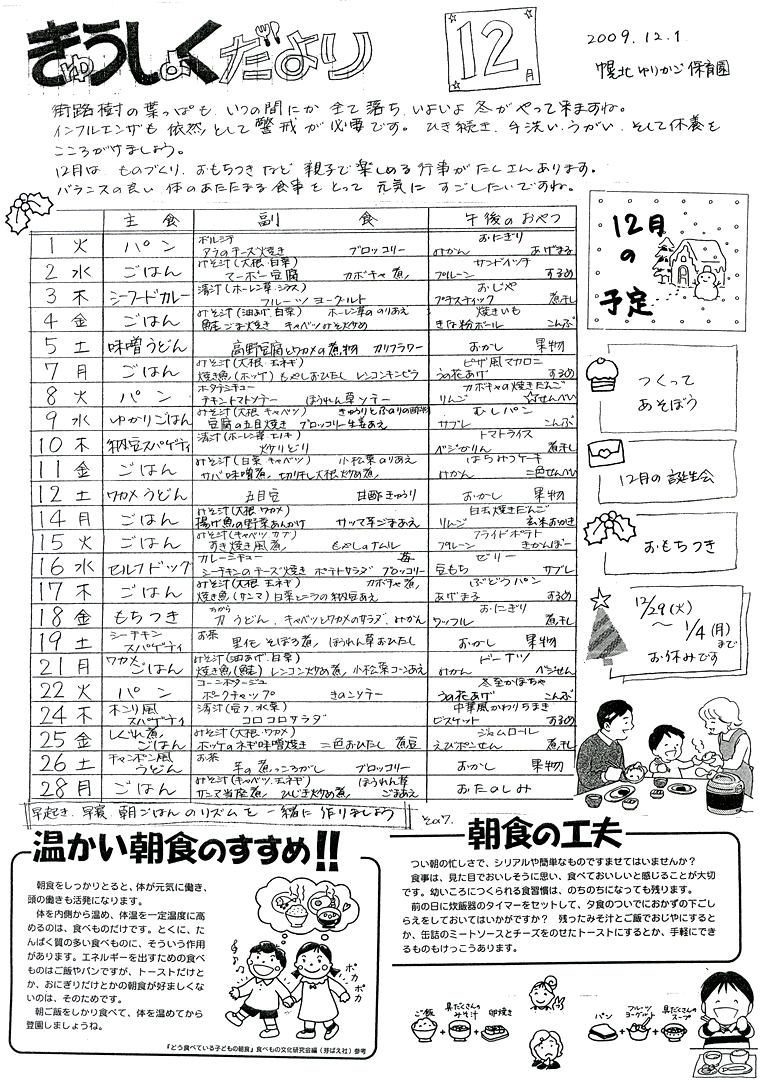 きゅうしょくだより
12月
2009.12.1
幌北ゆりかご保育園
街路樹の葉っぱも、いつの間にか全て落ち、いよいよ冬がやって来ますね。
インフルエンザも依然として警戒が必要です。ひき続き、手洗い、うがい、そして休養を
こころがけましょう。
12月は、ものづくり、おもちつきなど親子で楽しめる行事がたくさんあります。
バランスの良い体のあたたまる食事をとって元気にすごしたいですね。
主食 副食 午後のおやつ
1 火 パン ボルシチ タラのチーズ焼き ブロッコリー おにぎり みかん あげまる
2 水 ごはん みそ汁(大根、白菜) マーボー豆腐 カボチャ煮 サンドイッチ プルーン するめ
3 木 シーフードカレー 清汁(ホーレン草、シラス) フルーツヨーグルト おじや プチスティック 煮干し
4 金 ごはん みそ汁(油あげ、白菜) ホーレン草ののりあえ 鮭ごま焼き キャベツみそ炒め 焼きいも きな粉ボール こんぶ
5 土 味噌うどん 高野豆腐とワカメの煮物 カリフラワー おかし 果物
7 月 ごはん みそ汁(大根、玉ネギ) 焼き魚(ホッケ) もやしおひたし レンコンキンピラ ピザ風マカロニ うの花あげ するめ
8 火 パン ホタテシチュー チキントマトソテー ほうれん草ソテー カボチャの焼きだんご りんご せんべい
9 水 ゆかりごはん みそ汁(大根、キャベツ) きゅうりとふのりの酢物 豆腐の五目焼き ブロッコリー生姜あえ むしパン サブレ こんぶ
10 木 納豆スパゲティ 清汁(ホーレン草、エノキ) 炒りどり トマトライス ベジかりん 煮干し
11 金 ごはん みそ汁(白菜、キャベツ) 小松菜のりあえ サバ味噌煮 切り干し大根炒め煮 はちみつケーキ みかん 二色せんべい
12 土 ワカメうどん 五目豆 甘酢きゅうり おかし 果物
14 月 ごはん みそ汁(大根、ワカメ) 揚げ魚の野菜あんかけ サツマ芋ごまあえ 白玉焼きだんご りんご 玄米おかき
15 火 ごはん みそ汁(キャベツ、カブ) すき焼き風煮 もやしのナムル フライドポテト プルーン きかんぼー
16 水 セルフドッグ カレーシチュー 苺 シーチキンのチーズ焼き ポテトサラダ ブロッコリー ゼリー 豆もち サブレ
17 木 ごはん みそ汁(大根、玉ネギ) カボチャ煮 焼き魚(サンマ) 白菜とニラの納豆あえ ぶどうパン あげまる するめ
18 金 もちつき 力うどん、キャベツとワカメのサラダ、みかん おにぎり ワッフル 煮干し
19 土 シーチキンスパゲティ お茶 里芋そぼろ煮 ほうれん草おひたし おかし 果物
21 月 ワカメごはん みそ汁(油あげ、白菜) 焼き魚(鮭) レンコン炒め煮 小松菜コーンあえ ドーナツ みかん ベジせん
22 火 パン コーンポタージュ ポークチャップ きのこソテー 冬至かぼちゃ うの花あげ こんぶ
24 木 キコリ風スパゲティ 清汁(豆フ、水菜) コロコロサラダ 中華風かわりちまき ビスケット するめ
25 金 しぐれ煮ごはん みそ汁(大根、ワカメ) ホッケのネギ味噌焼き 二色おひたし 煮豆 ジャムロール えびポンせん 煮干し
26 土 チャンポン風うどん お茶 芋の煮っころがし ブロッコリー おかし 果物
28 月 ごはん みそ汁(キャベツ、玉ネギ) ほうれん草ごまあえ サンマ当座煮 ひじき炒め煮 おたのしみ
12月の予定
つくってあそぼう
12月の誕生会
おもちつき
12/29(火)
〜1/4(月)まで
お休みです
早起き、早寝、朝ごはんのリズムを一緒に作りましょう その7.
温かい朝食のすすめ!!
朝食をしっかりとると、体が元気に働き、
頭の働きも活発になります。
体を内側から温め、体温を一定温度に高
めるのは、食べものだけです。とくに、た
んぱく質の多い食べものに、そういう作用
があります。エネルギーを出すための食べ
ものはご飯やパンですが、トーストだけと
か、おにぎりだけとかの朝食が好ましくな
いのは、そのためです。
朝ご飯をしっかり食べて、体を温めてから
登園しましょうね。
ポカポカ
『どう食べている子どもの朝食』食べもの文化研究会編(芽ばえ社)参考
朝食の工夫
つい朝の忙しさで、シリアルや簡単なものですませてはいませんか?
食事は、見た目でおいしそうに思い、食べておいしいと感じることが大切
です。幼いころにつくられる食習慣は、のちのちになっても残ります。
前の日に炊飯器のタイマーをセットして、夕食のついでにおかずの下ごし
らえをしておいてはいかがですか? 残ったみそ汁とご飯でおじやにすると
か、缶詰のミートソースとチーズをのせたトーストにするとか、手軽にでき
るものもけっこうあります。
ご飯 + 具だくさんのみそ汁 + 卵焼き
パン + フルーツヨーグルト + 具だくさんのスープ